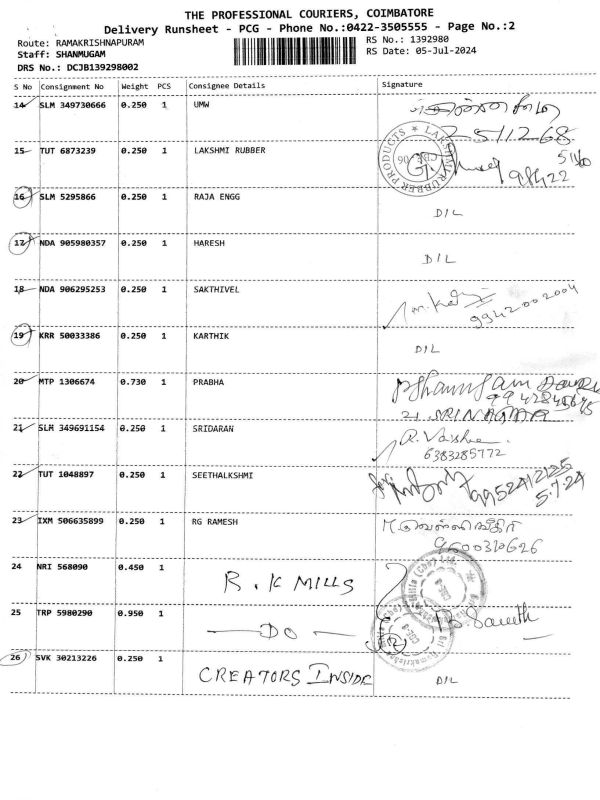 THE PROFESSIONAL COURIERS, COIMBATORE
Delivery Runsheet - PCG - Phone No.:0422-3505555 - Page No.:2
Route: RAMAKRISHNAPURAM
Staff: SHANMUGAM
DRS No.: DCJB139298002
RS No.: 1392980
RS Date: 05-Jul-2024
S No Consignment No Weight PCS Consignee Details Signature
14 SLM 349730666 0.250 1 UMW
15 TUT 6873239 0.250 1 LAKSHMI RUBBER
LAKSHMI RUBBER PRODUCTS
98422
16 SLM 5295866 0.250 1 RAJA ENGG D/L
17 NDA 905980357 0.250 1 HARESH D/L
18 NDA 906295253 0.250 1 SAKTHIVEL
9942002004
19 KRR 50033386 0.250 1 KARTHIK D/L
20 MTP 1306674 0.730 1 PRABHA
21. SRINAGAR
21 SLM 349691154 0.250 1 SRIDARAN
6383285772
22 TUT 1048897 0.250 1 SEETHALKSHMI
9952412125
5.7.24
23 IXM 506635899 0.250 1 RG RAMESH
9600310626
24 NRI 568090 0.450 1 R.K MILLS
25 TRP 5980290 0.950 1 —DO—
26 SVK 30213226 0.250 1 CREATORS INSIDE D/L